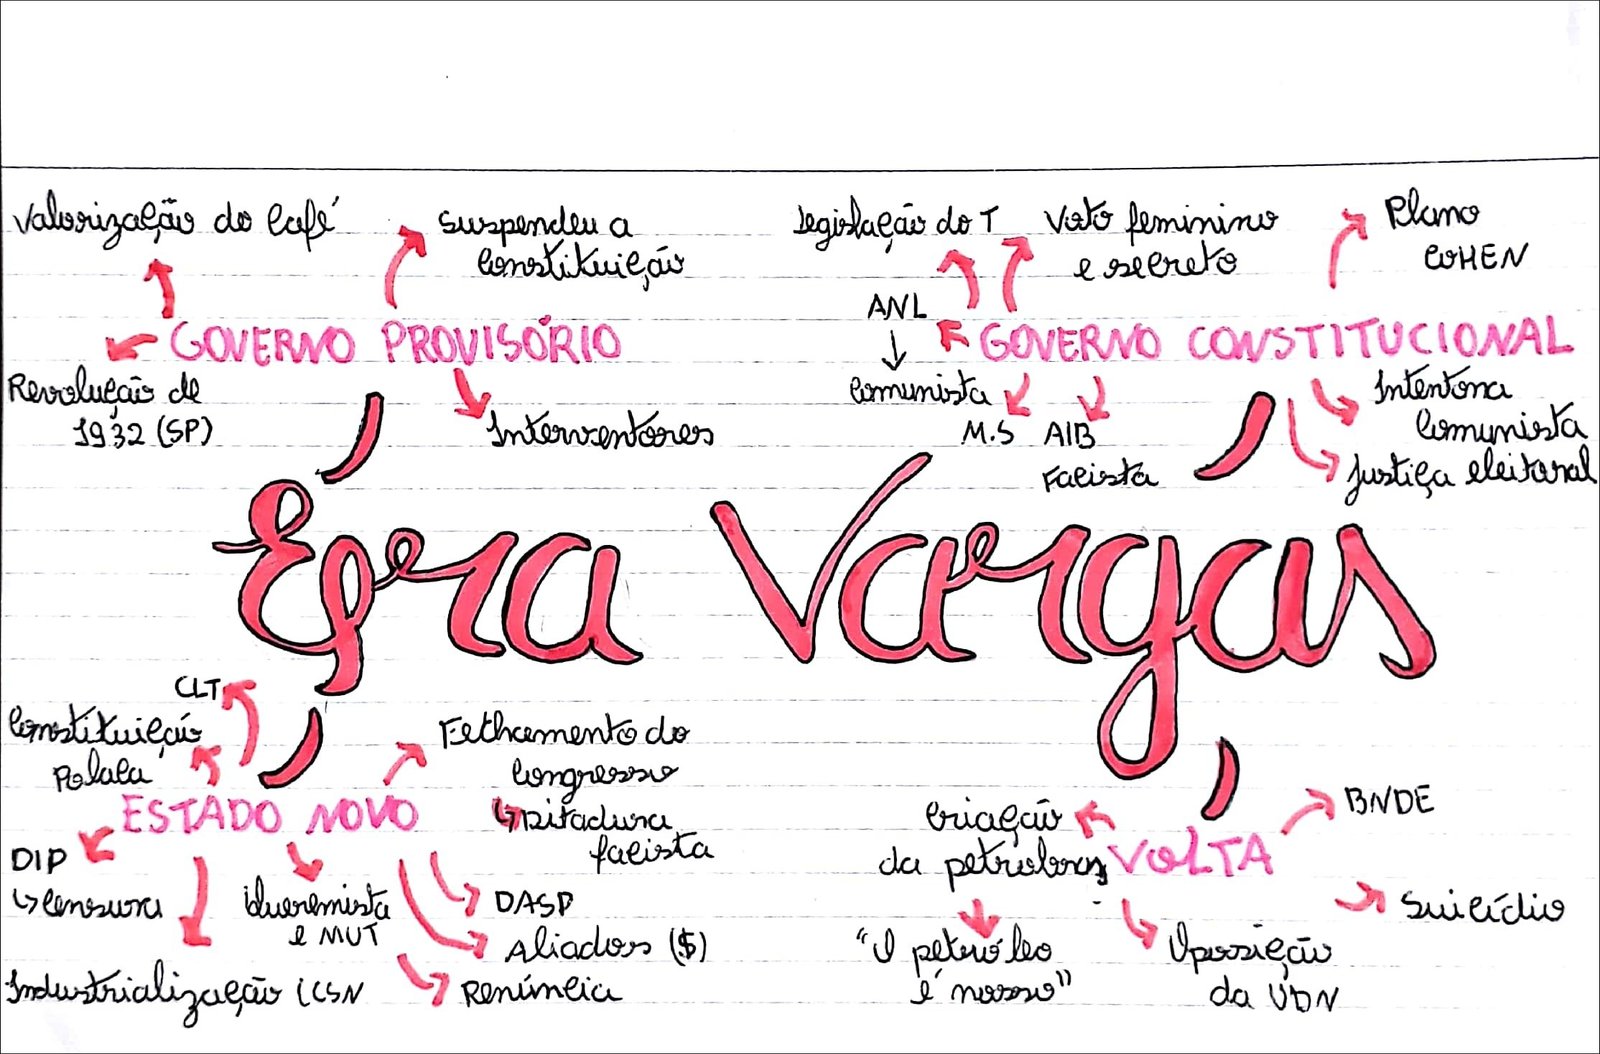 Valorização do Café
Suspendeu a
Constituição
GOVERNO PROVISÓRIO
Revolução de
1932 (SP)
Interventores
Legislação do T
Voto feminino
e secreto
Plano
COHEN
ANL
GOVERNO CONSTITUCIONAL
Comunista
M.S
AIB
Facista
Intentona
Comunista
Justiça eleitoral
Era Vargas
CLT
Constituição
Polaca
Fechamento do
Congresso
Ditadura
facista
ESTADO NOVO
DIP
Censura
Queremista
e MUT
DASP
Aliados ($)
Renúncia
Industrialização CSN
Criação
da petrobras
VOLTA
BNDE
Suicídio
"O petróleo
é nosso"
Oposição
da UDN